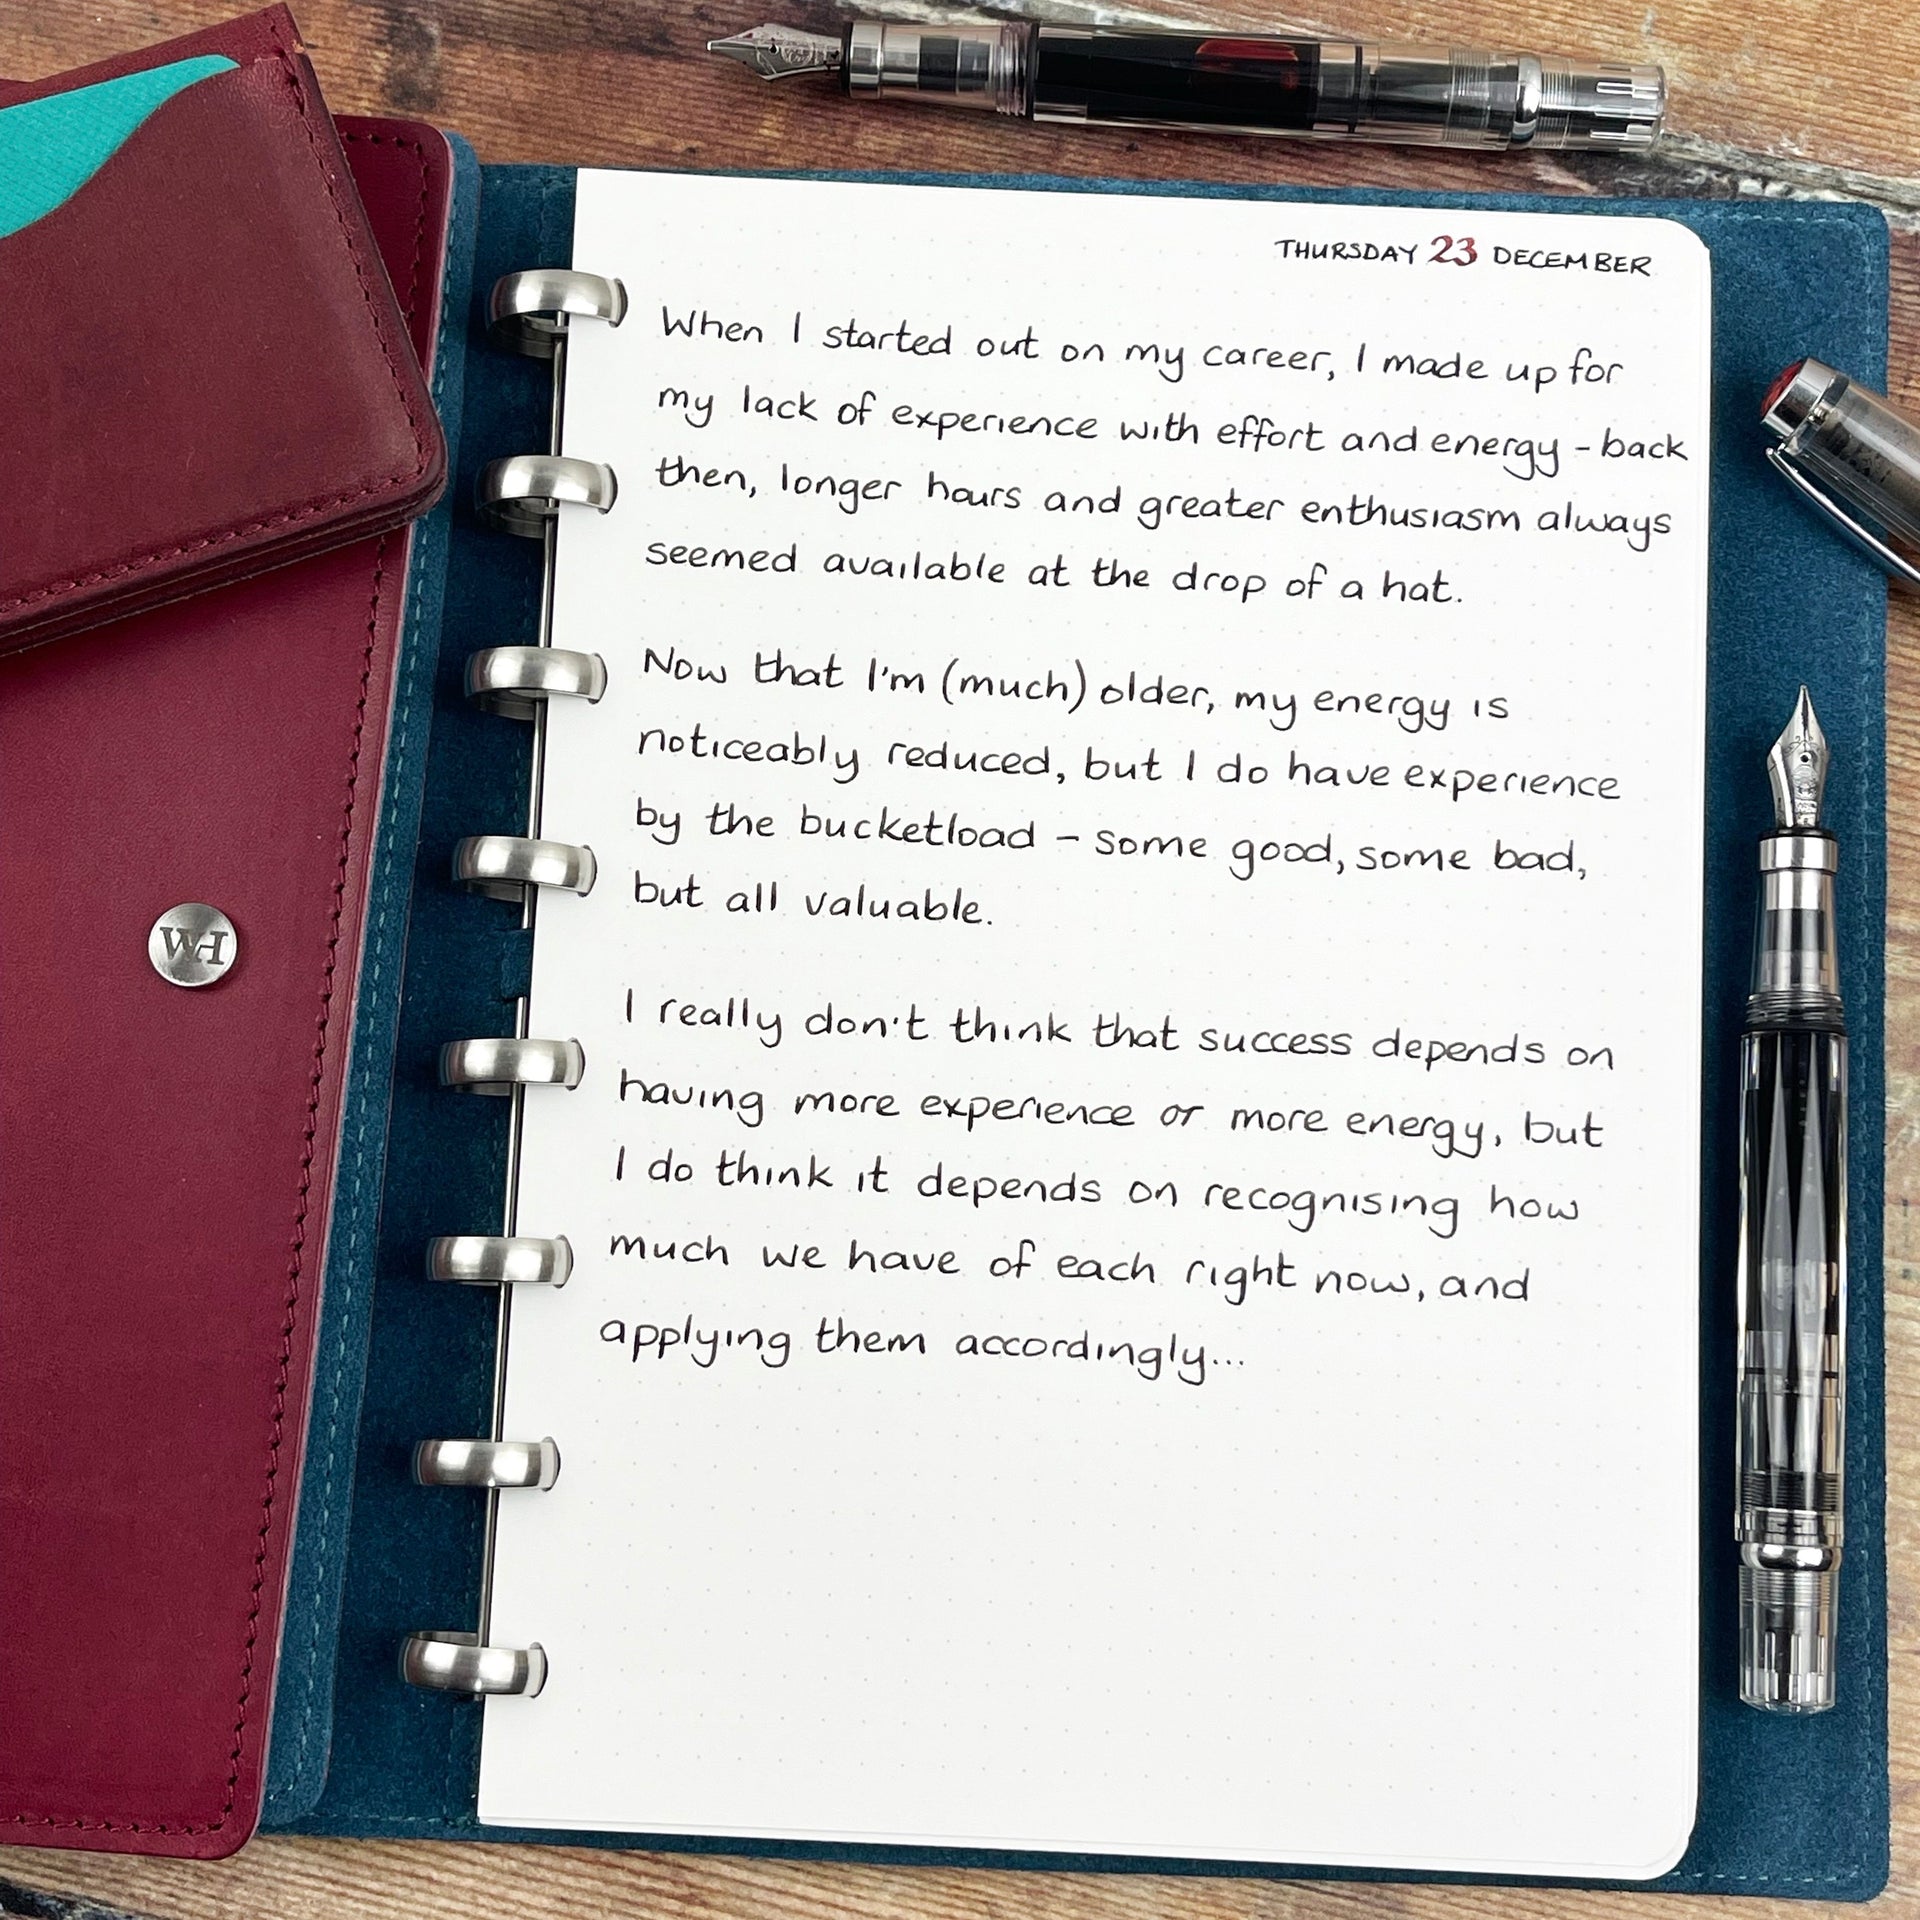 THURSDAY 23 DECEMBER
When I started out on my career, I made up for
my lack of experience with effort and energy - back
then, longer hours and greater enthusiasm always
seemed available at the drop of a hat.
Now that I'm (much) older, my energy is
noticeably reduced, but I do have experience
by the bucketload - some good, some bad,
but all valuable.
I really don't think that success depends on
having more experience or more energy, but
I do think it depends on recognising how
much we have of each right now, and
applying them accordingly...
WH